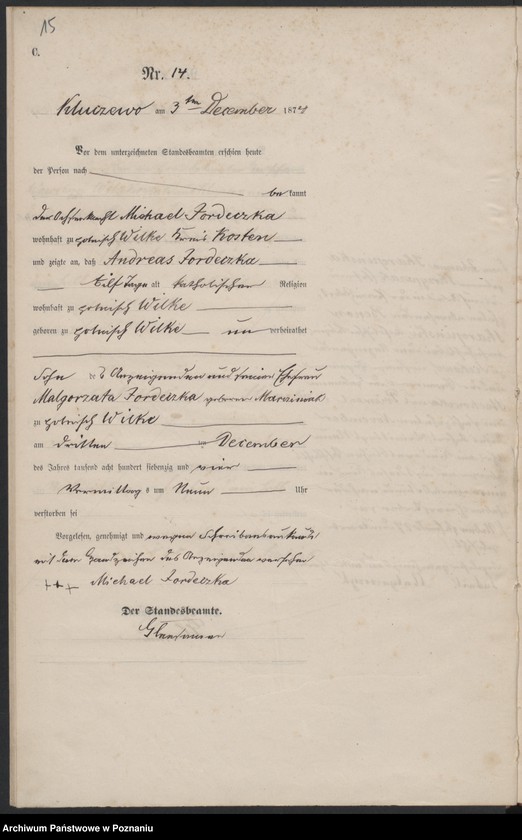 15
C.
Nr. 14.
Kluczewo am 3ten December 1874
Vor dem unterzeichneten Standesbeamten erschien heute
der Person nach
bekannt
der Ochsenknecht Michael Jordeczka
wohnhaft zu polnisch Wilke Kreis Kosten
und zeigte an, daß Andreas Jordeczka
Eilf Tage alt katholischer Religion
wohnhaft zu polnisch Wilke
geboren zu polnisch Wilke unverheirathet
Sohn des Anzeigenden und seiner Ehefrau
Malgorzata Jordeczka geborene Marciniak
zu polnisch Wilke
am dritten December
des Jahres tausend acht hundert siebenzig und vier
Vormittags um Neun Uhr
verstorben sei
Vorgelesen, genehmigt und wegen Schreibensunkunde
mit dem Handzeichen des Anzeigenden versehen
+++ Michael Jordeczka
Der Standesbeamte.
Archiwum Państwowe w Poznaniu